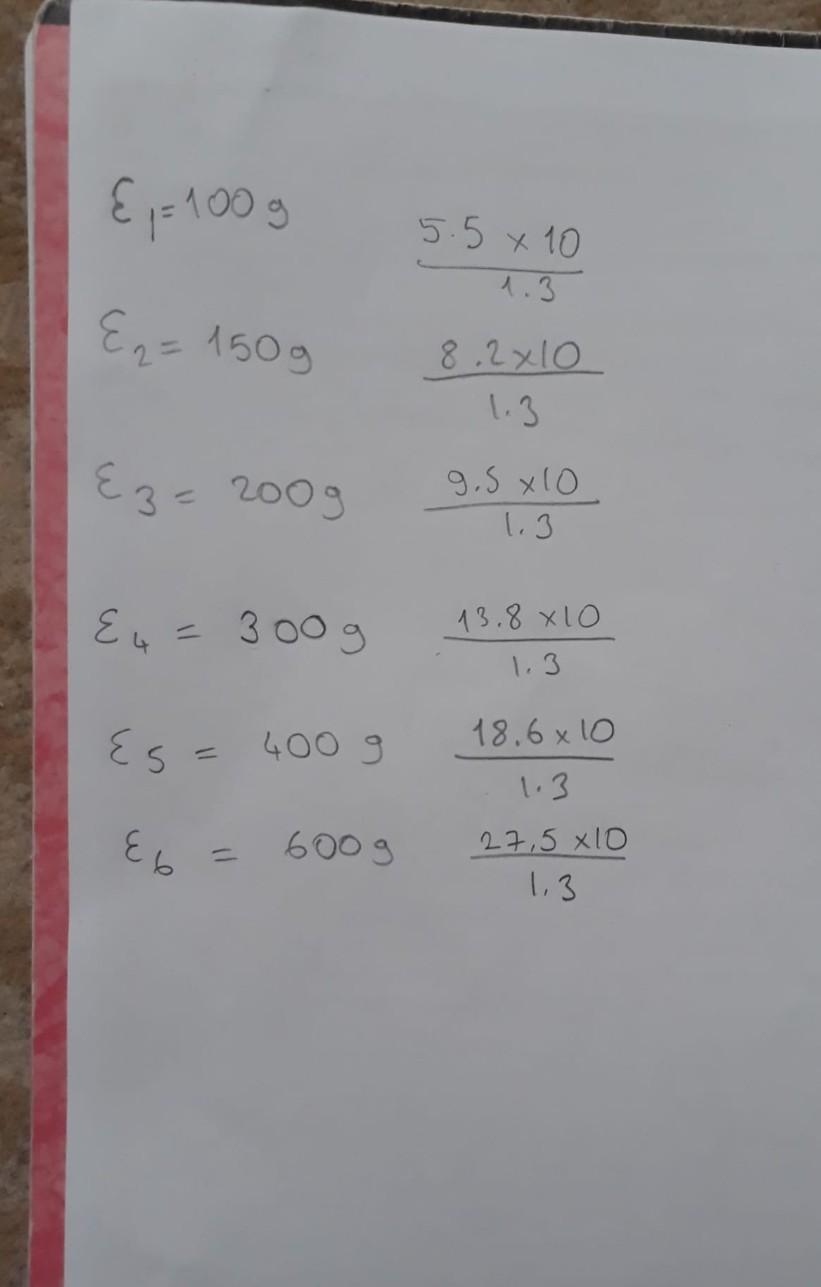 ε1=100g
5.5 x 10
1.3
ε2= 150g
8.2x10
1.3
ε3= 200g
9.5 x10
1.3
ε4 = 300g
13.8 x10
1.3
ε5 = 400 g
18.6 x 10
1.3
ε6 = 600g
27,5 x10
1.3